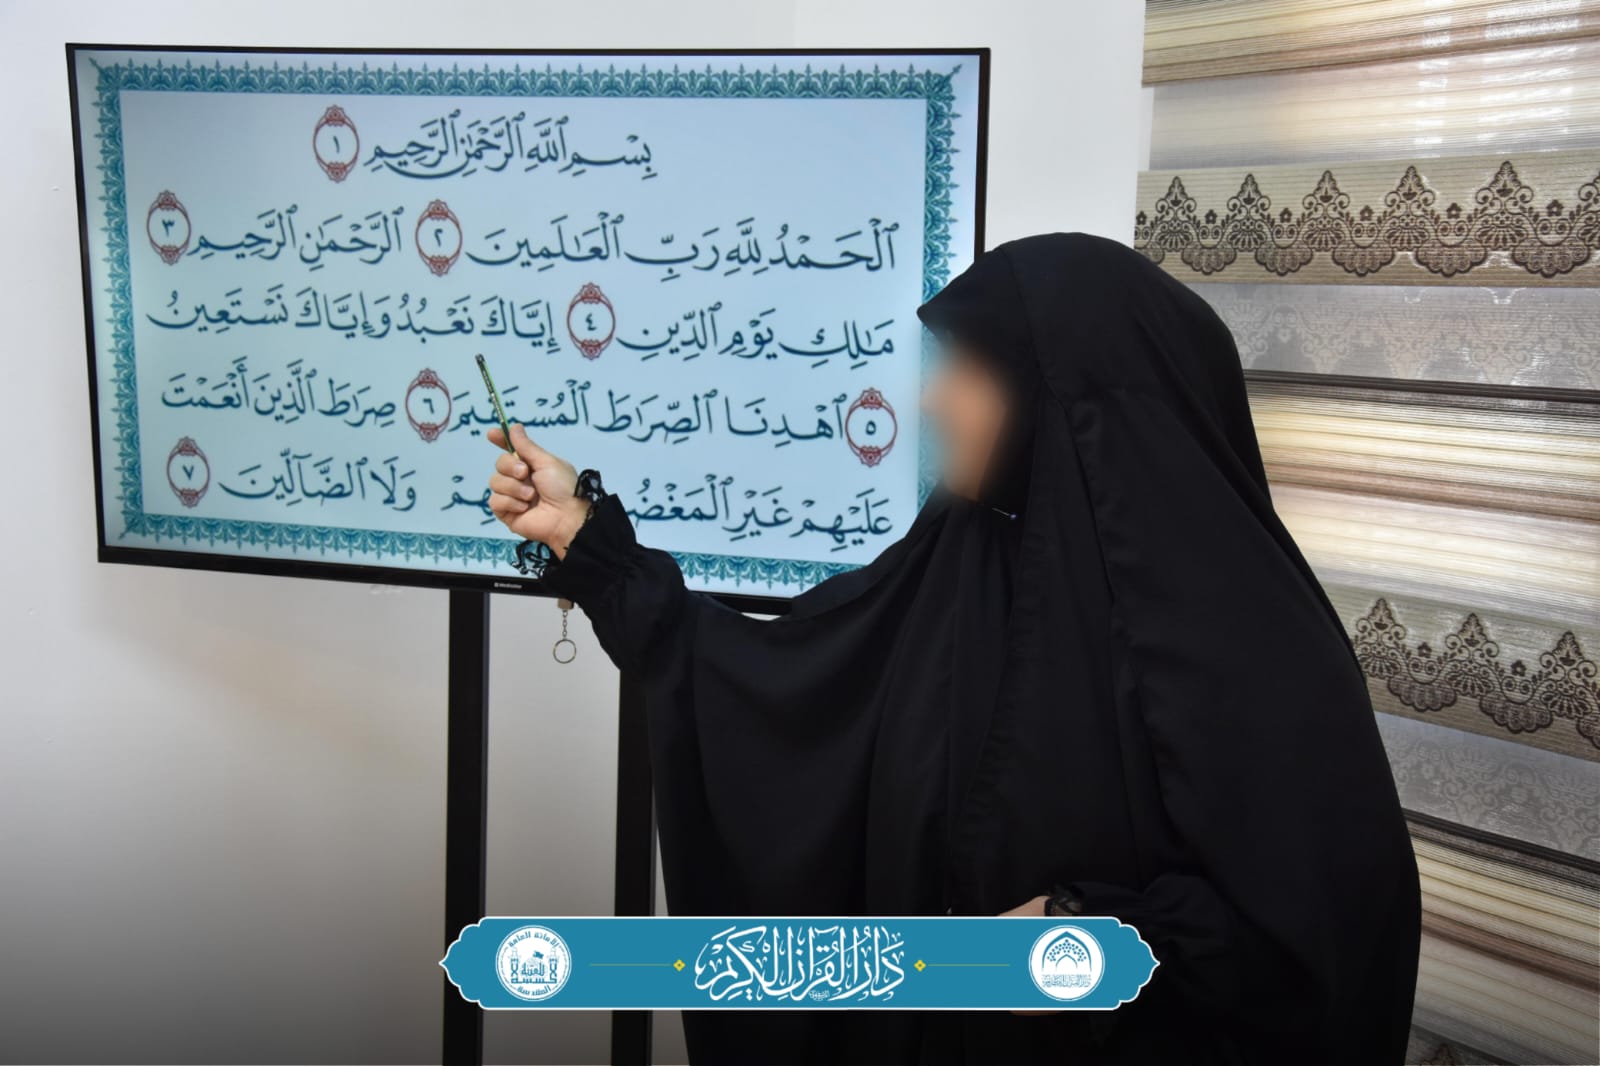 بِسْمِ ٱللَّهِ ٱلرَّحْمَٰنِ ٱلرَّحِيمِ ١
ٱلْحَمْدُ لِلَّهِ رَبِّ ٱلْعَٰلَمِينَ ٢ ٱلرَّحْمَٰنِ ٱلرَّحِيمِ ٣
مَٰلِكِ يَوْمِ ٱلدِّينِ ٤ إِيَّاكَ نَعْبُدُ وَإِيَّاكَ نَسْتَعِينُ
٥ ٱهْدِنَا ٱلصِّرَٰطَ ٱلْمُسْتَقِيمَ ٦ صِرَٰطَ ٱلَّذِينَ أَنْعَمْتَ
عَلَيْهِمْ غَيْرِ ٱلْمَغْضُ هِمْ وَلَا ٱلضَّآلِّينَ ٧
دَارُ القُرْآنِ الْكَرِيمِ
الأمانة العامة
للعتبة
الحسينية
المقدسة